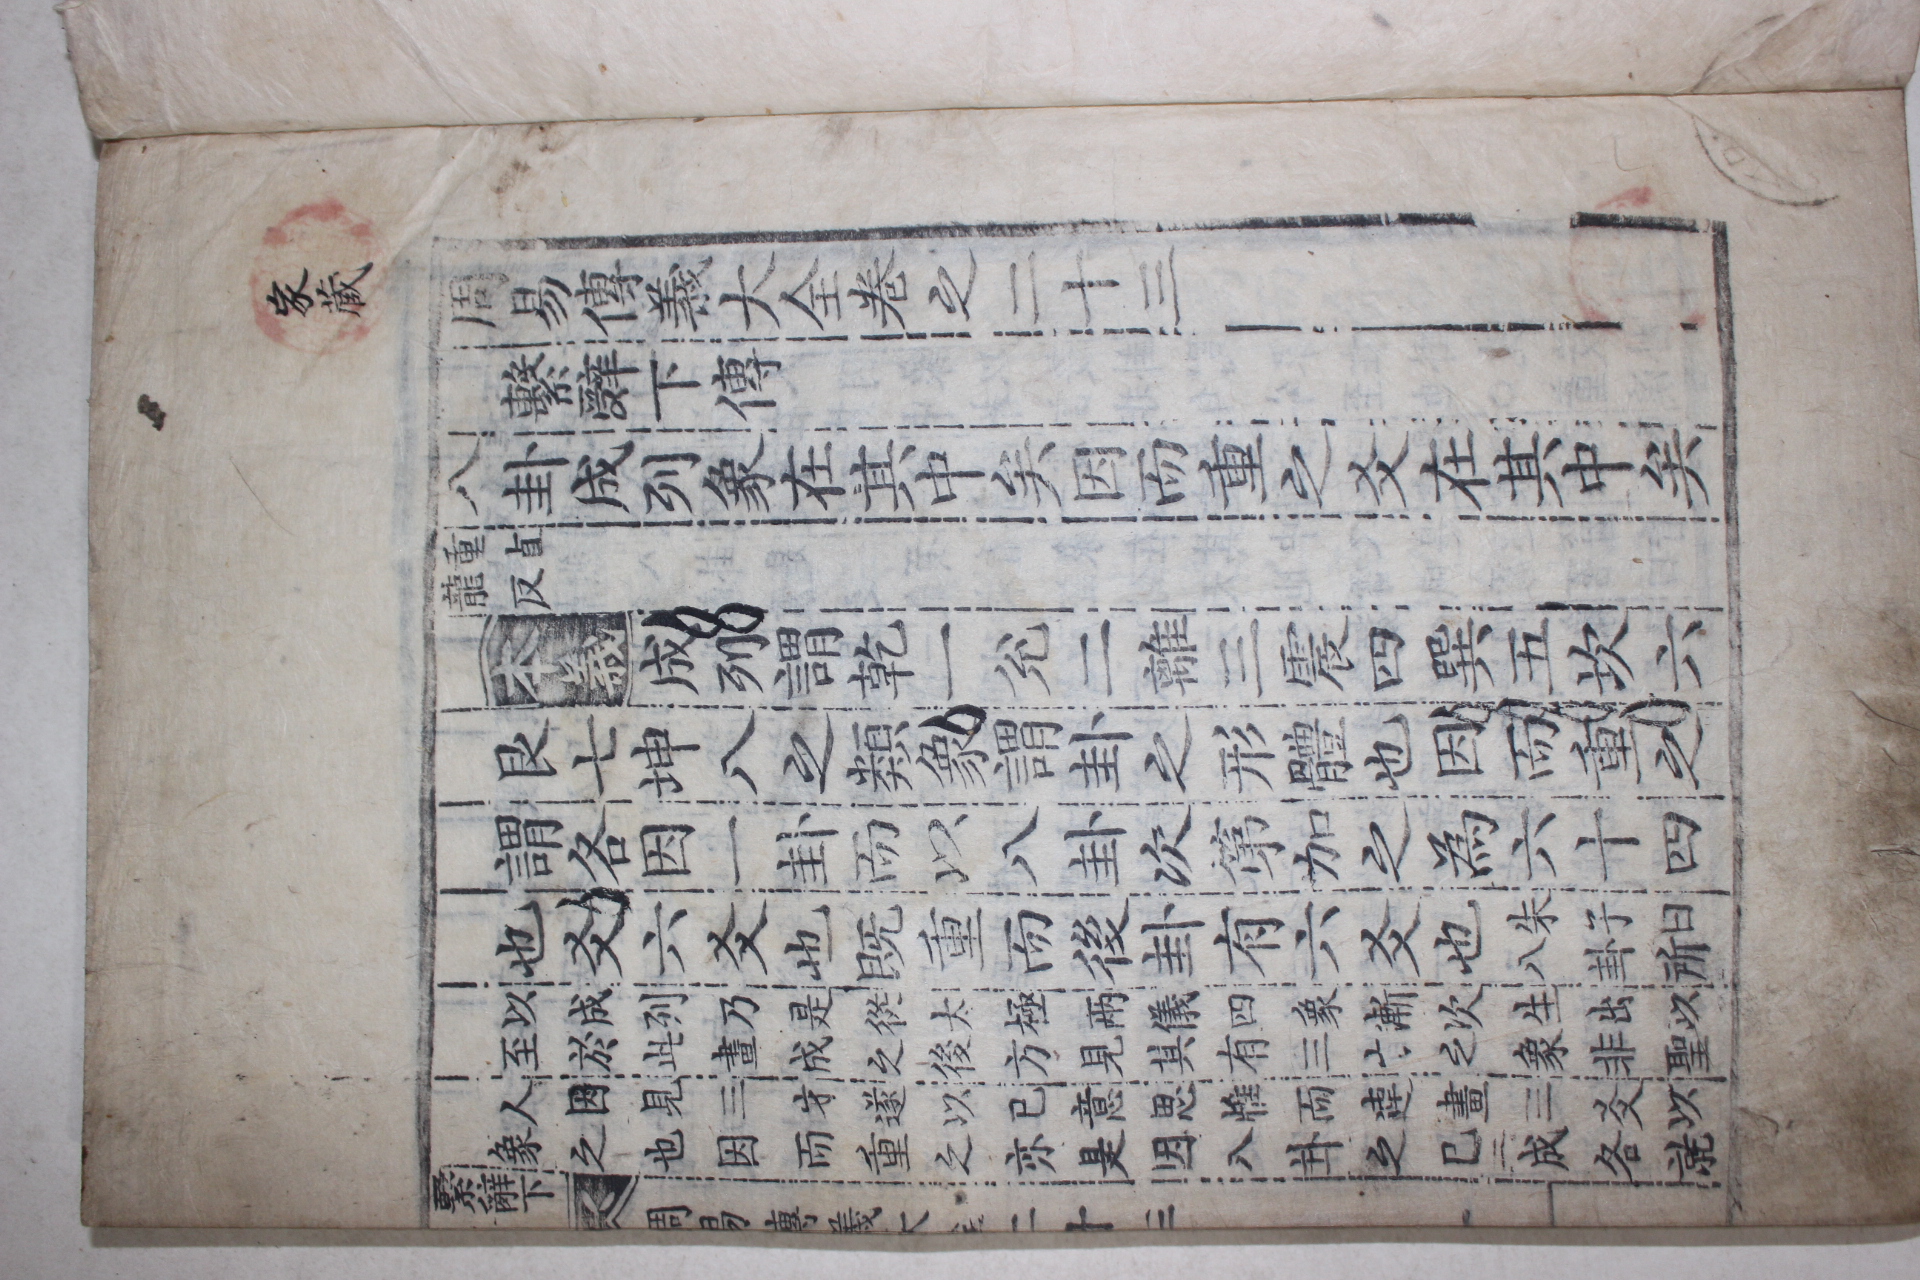 家藏
周易傳義大全卷之二十三
繫辭下傳
八卦成列象在其中矣因而重之爻在其中矣
重直
龍反
本義
成列謂乾一兊二離三震四巽五坎六
艮七坤八之類象謂卦之形體也因而重之
謂各因一卦而以八卦次第加之為六十四
也爻六爻也既重而後卦有六爻也
朱子曰
八卦所
以成列乃是從太極兩儀四象漸次生出以
至於此畫成之後方見其有三才之象非聖
人因見三才遂以已意思惟而連畫三爻以
象之也因而重之亦是因八卦之已成各就
繫辭下
周易傳義大全二十三
一